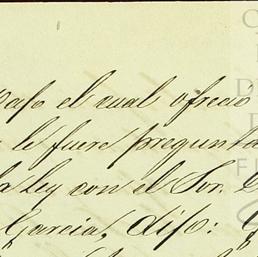 bajo el cual ofreció
le fuere pregunta
la Ley con el Sor.
Garcia, dijo: